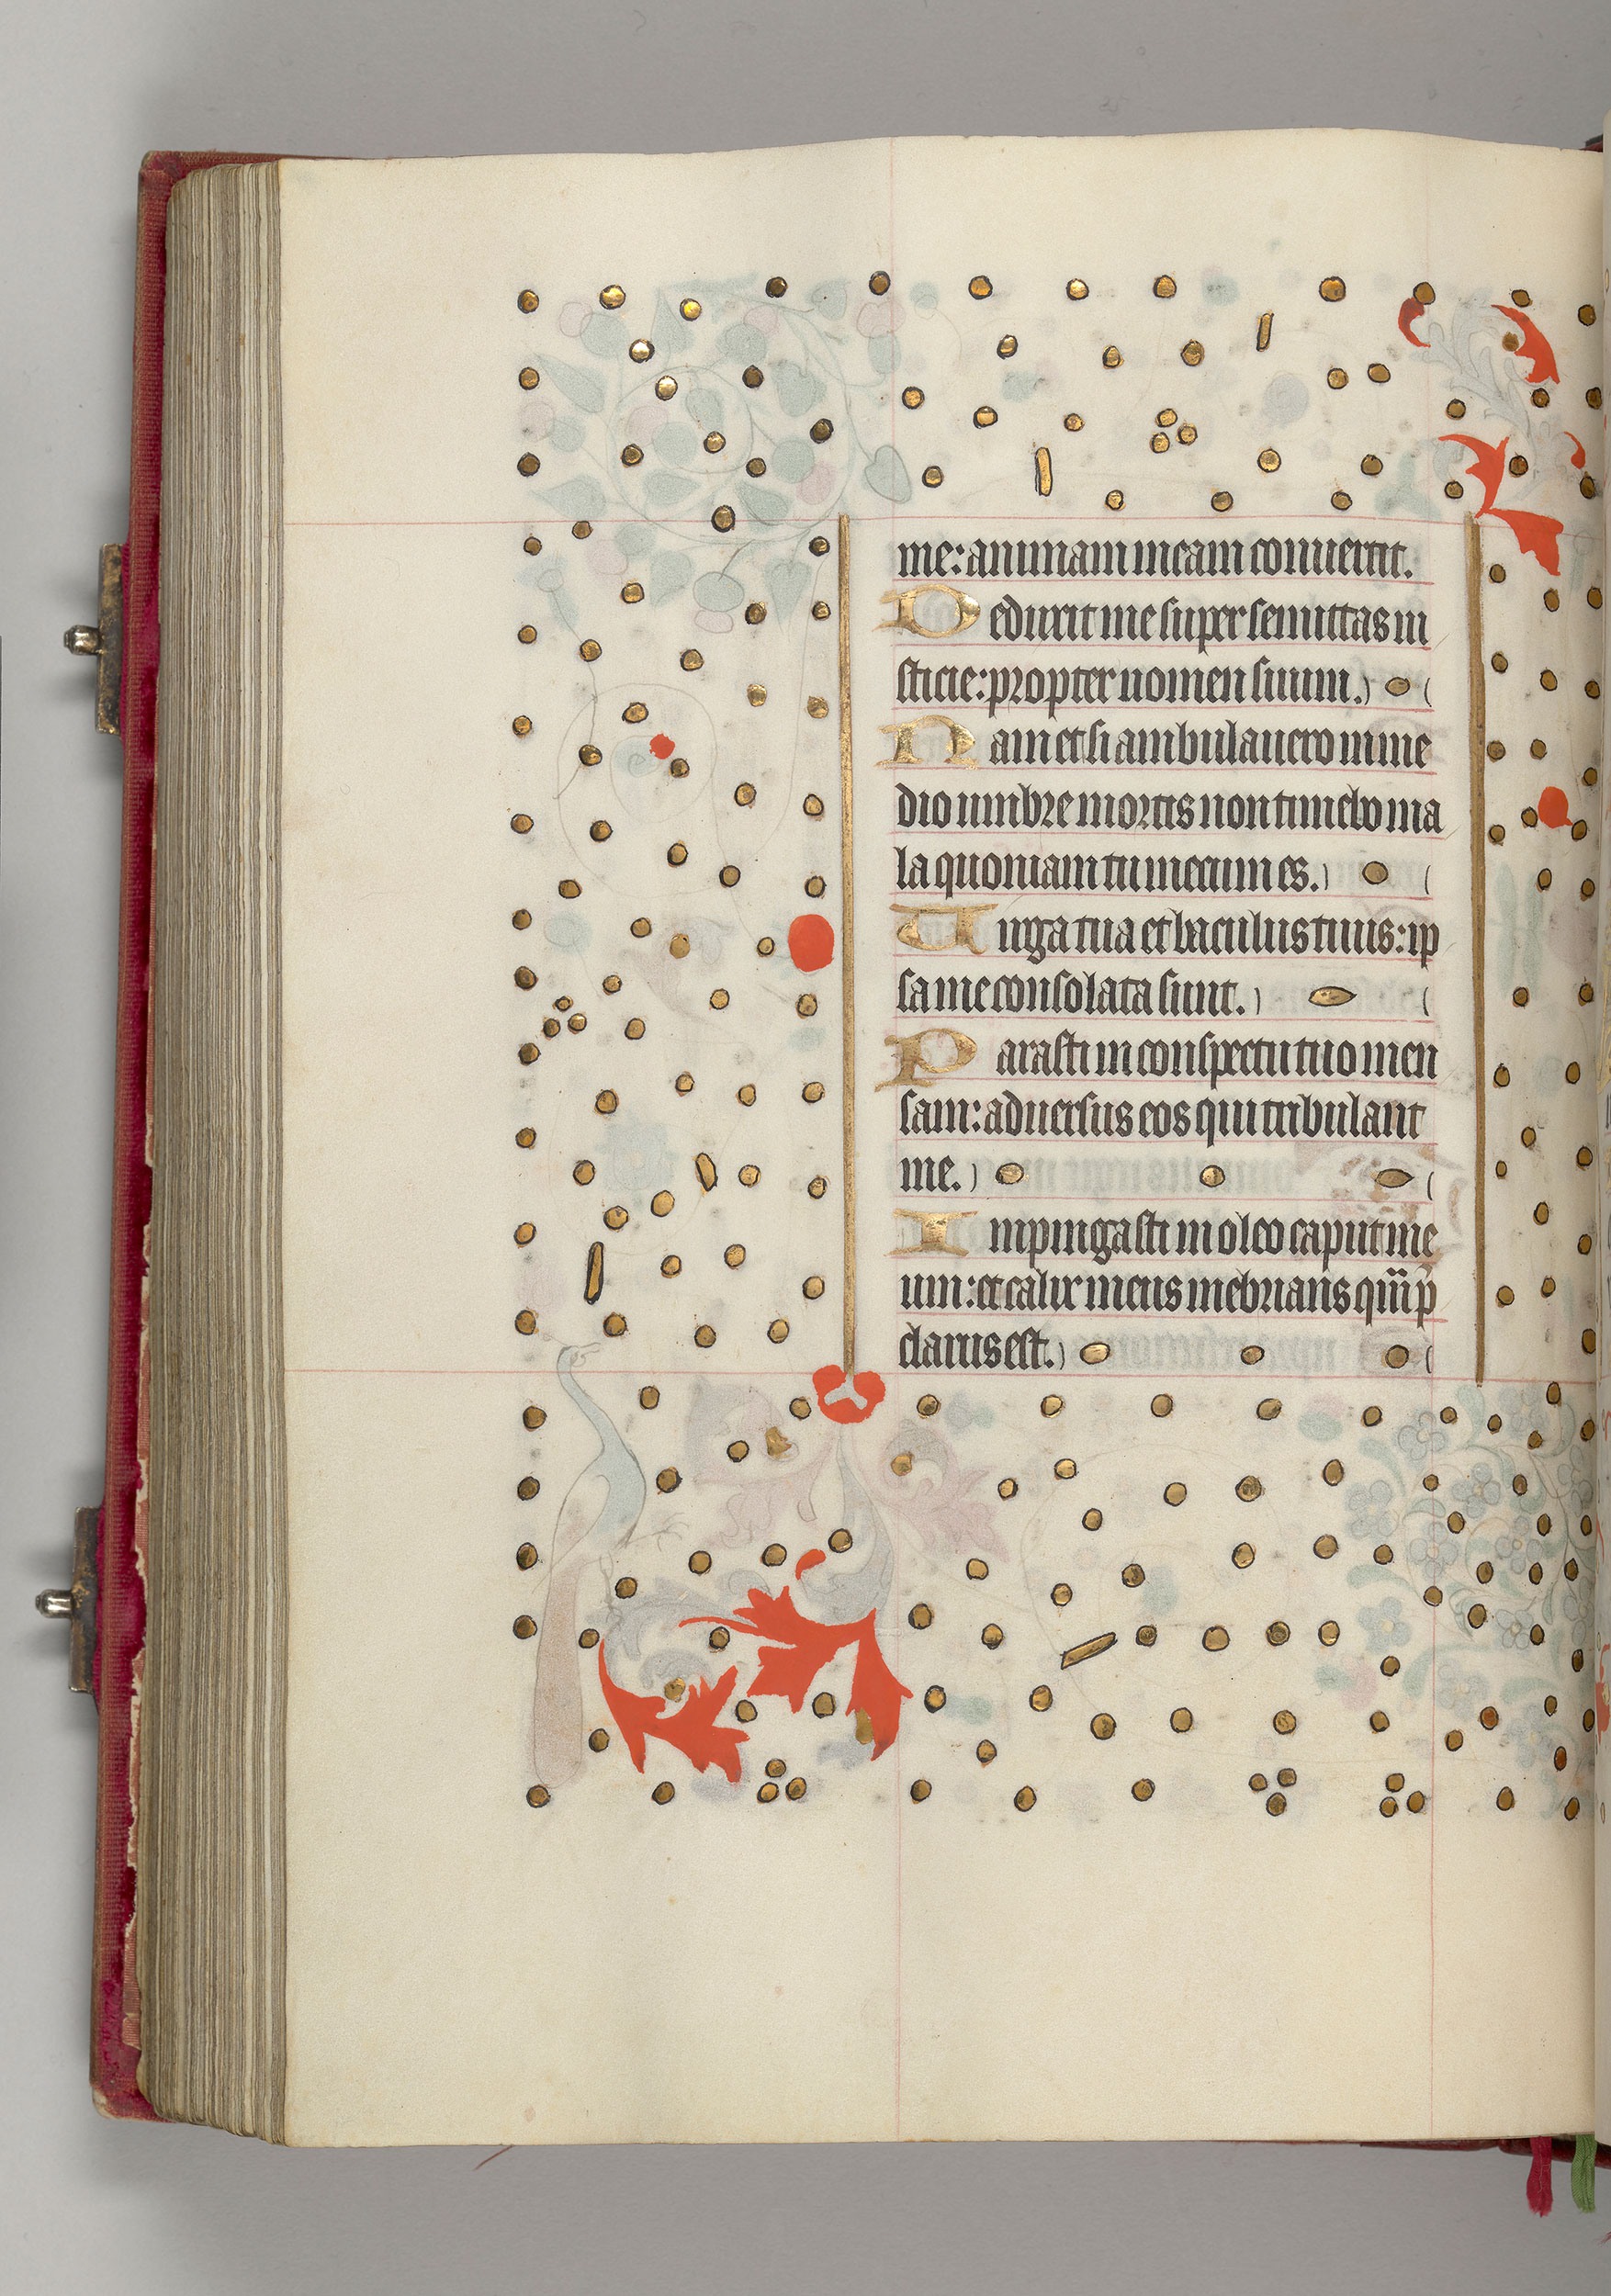 me: animam meam conuertit.
Deduxit me super semittas iu
sticie: propter nomen suum.
Nam et si ambulauero in me
dio umbre mortis non timebo ma
la quoniam tu mecum es.
Uirga tua et baculus tuus: ip
sa me consolata sunt.
Parasti in conspectu tuo men
sam: aduersus eos qui tribulant
me.
Inpingasti in oleo caput me
um: et calix meus inebrians qm̄ p̄
clarus est.